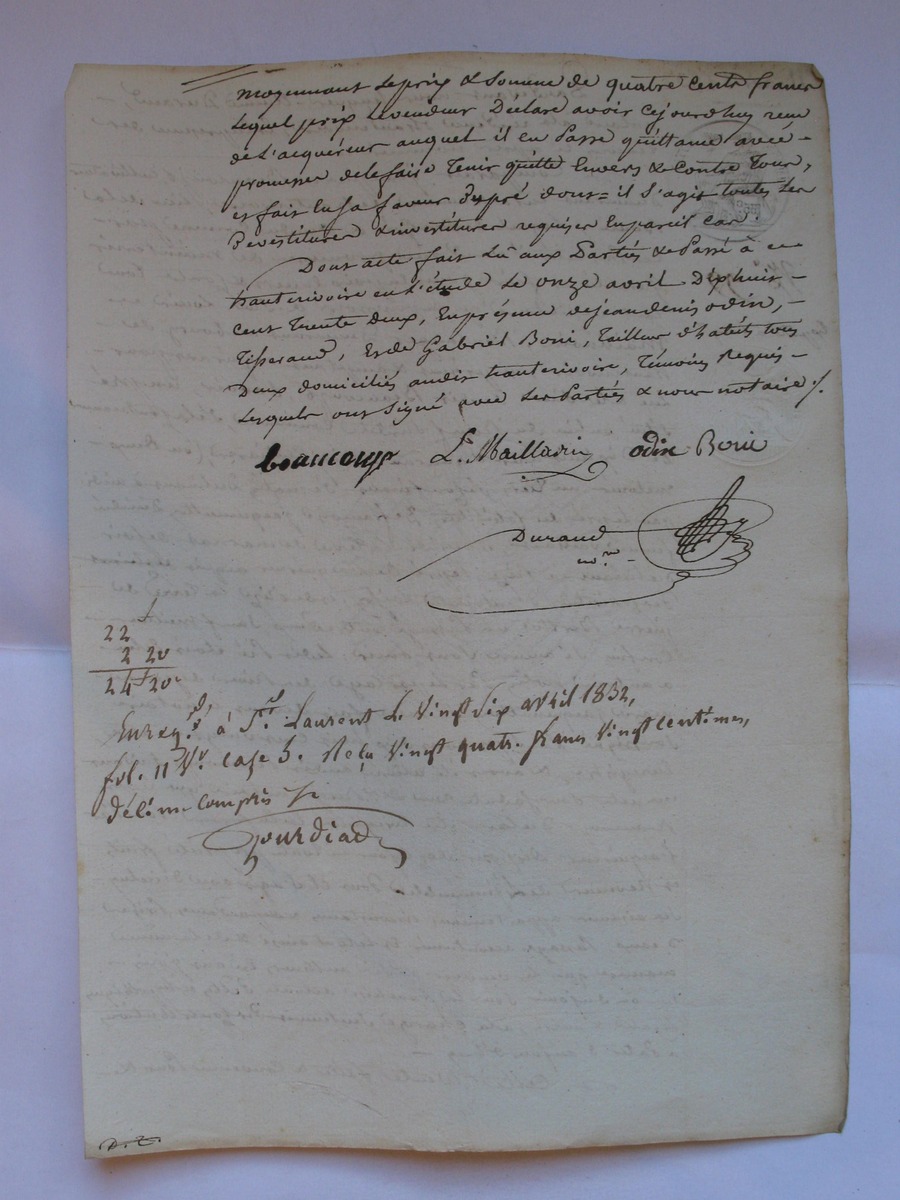 moyennant le prix & somme de quatre cents francs
lequel prix le vendeur Déclare avoir cejourdhuy recu
de l'acquéreur auquel il en Passe quittance avec
promesse de le faire Tenir quitte Envers & Contre Tous,
et fait en sa faveur du pré dont il s'agit toutes les
Devestitures & investitures requises En pareil cas.
Dont acte fait Lû aux Parties & Passé à
hauterivoire en l'étude Le onze avril Dix huit
cent trente Deux, En présence de jean denis odin,
Tisserand, Et de Gabriel Boni, Tailleur d'habits tous
Deux domiciliés audit hauterivoire, Témoins Requis
Lesquels ont signé avec Les Parties & nous notaire ./.
beaucoup L. Maillavin odin Boni
Durand
no.re
22
2 20
24 20
Enregé. à St. Laurent Le vingt six avril 1832,
fol. 11 vo. case 5. Reçu vingt quatre francs vingt centimes,
décime compris
Gourdiat
D. T.